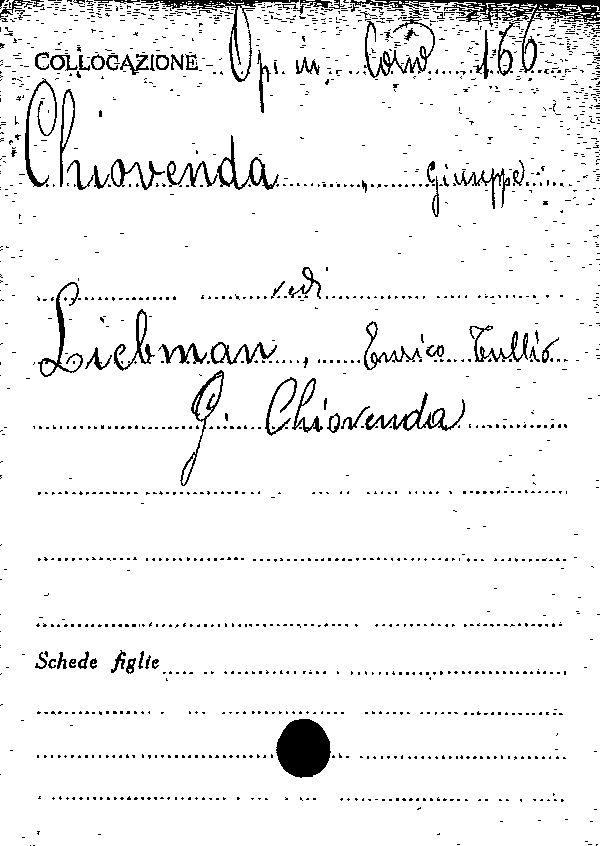 COLLOCAZIONE Op. in. 166
Chiovenda, Giuppe
vedi
Liebman, Enrico Tullio
G. Chiovenda
Schede figlie